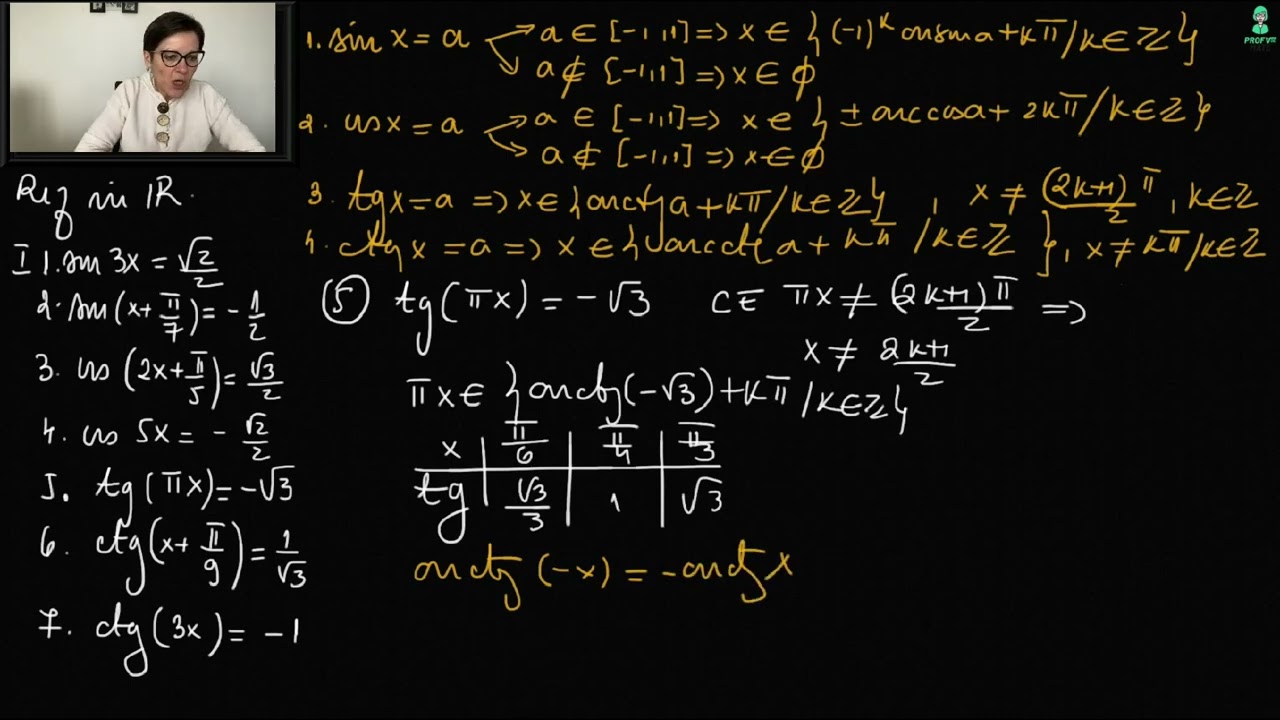 1. sin x = a → a ∈ [-1,1] => x ∈ {(-1)^k arcsin a + kπ / k ∈ ℤ}
→ a ∉ [-1,1] => x ∈ ∅
2. cos x = a → a ∈ [-1,1] => x ∈ {± arccos a + 2kπ / k ∈ ℤ}
→ a ∉ [-1,1] => x ∈ ∅
3. tg x = a => x ∈ {arctg a + kπ / k ∈ ℤ}, x ≠ (2k+1)π/2, k ∈ ℤ
4. ctg x = a => x ∈ {arcctg a + kπ / k ∈ ℤ}, x ≠ kπ / k ∈ ℤ
PROF V
Rez in ℝ.
I 1. sin 3x = √2/2
2. sin(x + π/7) = -1/2
3. cos(2x + π/5) = √3/2
4. cos 5x = -√2/2
5. tg(πx) = -√3
6. ctg(x + π/9) = 1/√3
7. ctg(3x) = -1
⑤ tg(πx) = -√3 CE πx ≠ (2k+1)π/2 =>
x ≠ 2k+1/2
πx ∈ {arctg(-√3) + kπ / k ∈ ℤ}
x | π/6 | π/4 | π/3
tg | √3/3 | 1 | √3
arctg(-x) = -arctg x